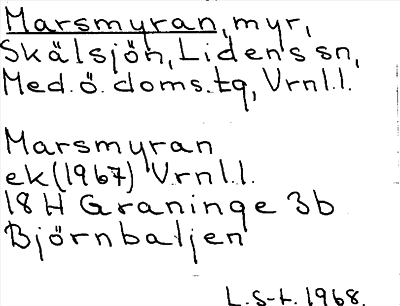 Marsmyran, myr,
Skälsjön, Lidens sn,
Med.ö.doms.tg, Vrnl.l.
Marsmyran
ek (1967) Vrnl.l.
18H Graninge 3b
Björnbaljen
L.S-t. 1968.